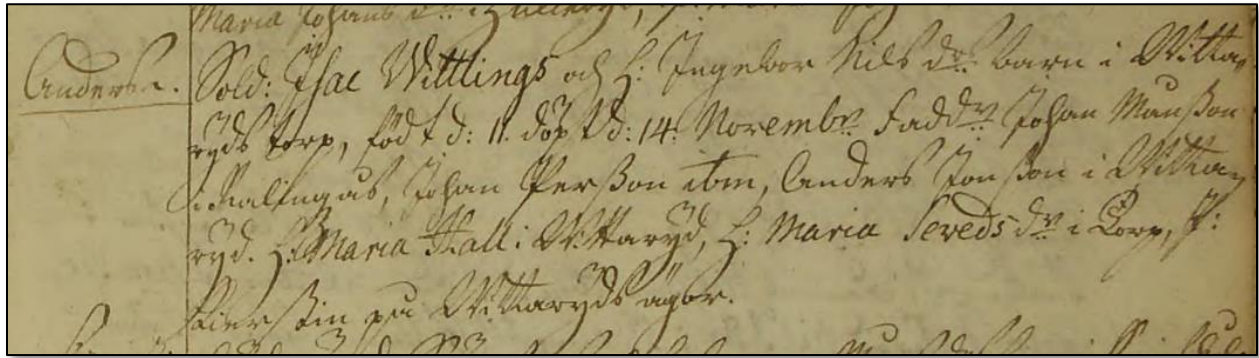 Maria Johans dr i
Anders.
Sold: Isac Wittlings och H: Ingebor Nils dr barn i Witta
ryds torp, född d: 11. döpt d: 14: Novembr. Faddr Johan Månsson
i Johan Persson ibm, Anders Jonsson i Witta
ryd. H: Maria Hall i Wittaryd, H: Maria Sveds dr i Torp, P:
Kierstin på Wittaryds ägor.